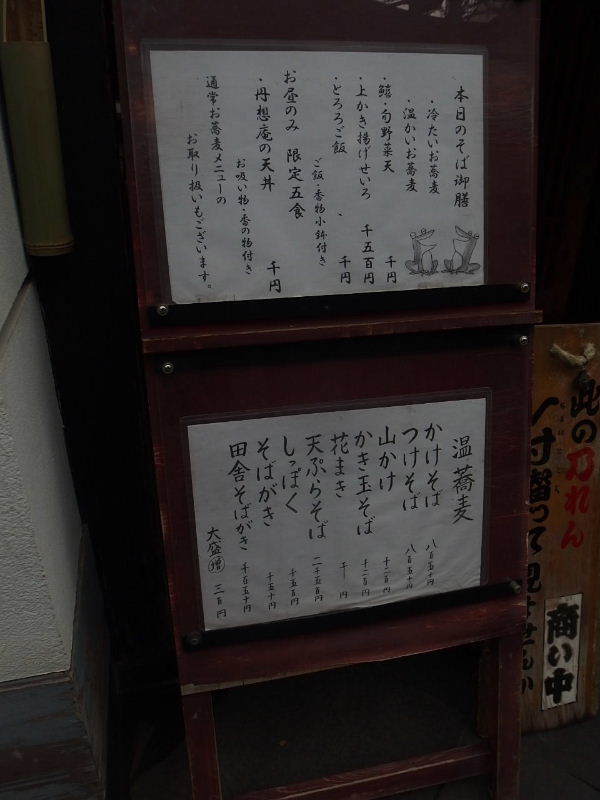 本日のそば御膳
・冷たいお蕎麦
・温かいお蕎麦
・鱚・旬野菜天 千円
・上かき揚げせいろ 千五百円
・とろろご飯 千円
ご飯・香物小鉢付き
お昼のみ 限定五食
・丹想庵の天丼 千円
お吸い物・香の物付き
通常お蕎麦メニューの
お取り扱いもございます。
温蕎麦
かけそば 八百五十円
つけそば 八百五十円
山かけ 千二百円
かき玉そば 千二百円
花まき 千円
天ぷらそば 二千五百円
しっぽく 千五百円
そばがき 千五十円
田舎そばがき 千百五十円
大盛増 三百円
此の乃れん
商い中